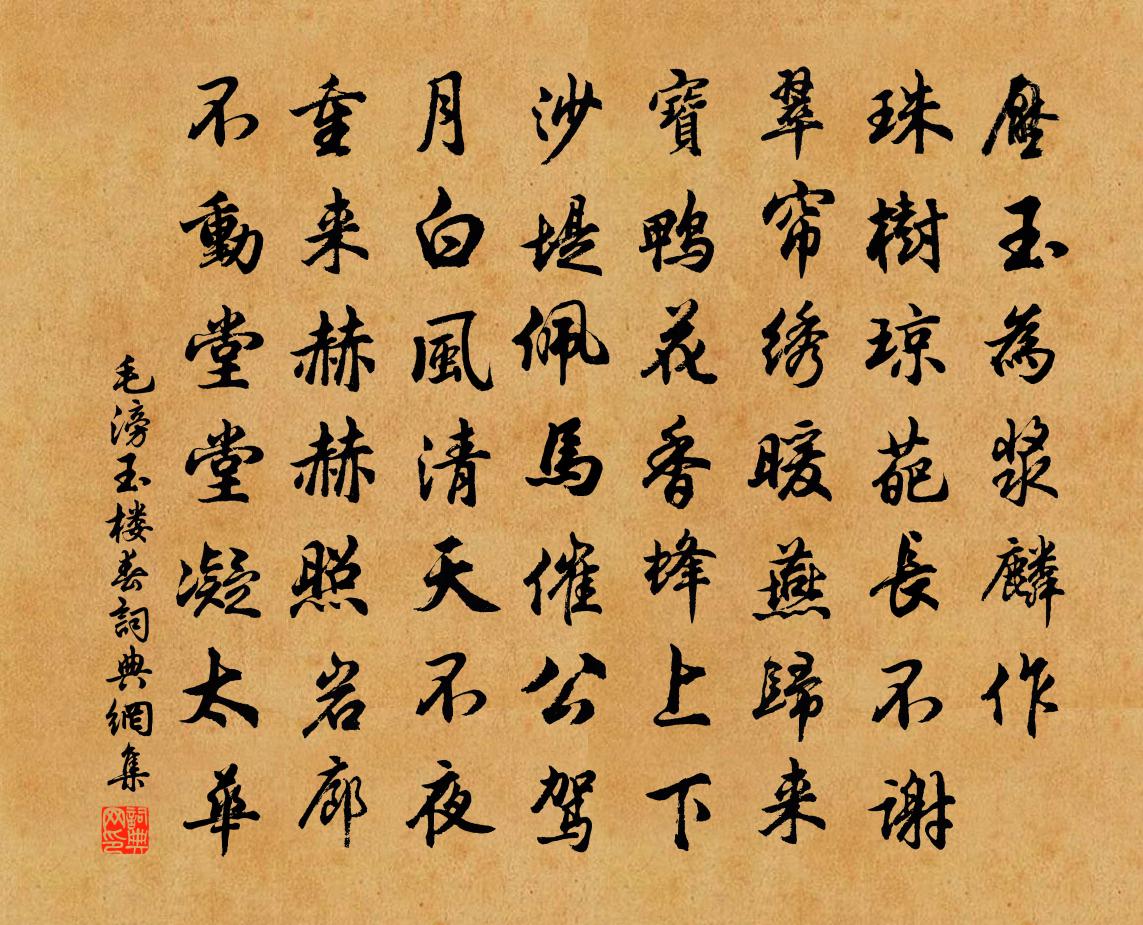 壓玉為漿麟作
珠樹琼葩長不謝
翠帘绣暖燕歸来
寶鴨花香蜂上下
沙堤佩馬催公駕
月白風清天不夜
重来赫赫照岩廊
不動堂堂凝太華
毛滂玉楼春詞典網集
詞典网印